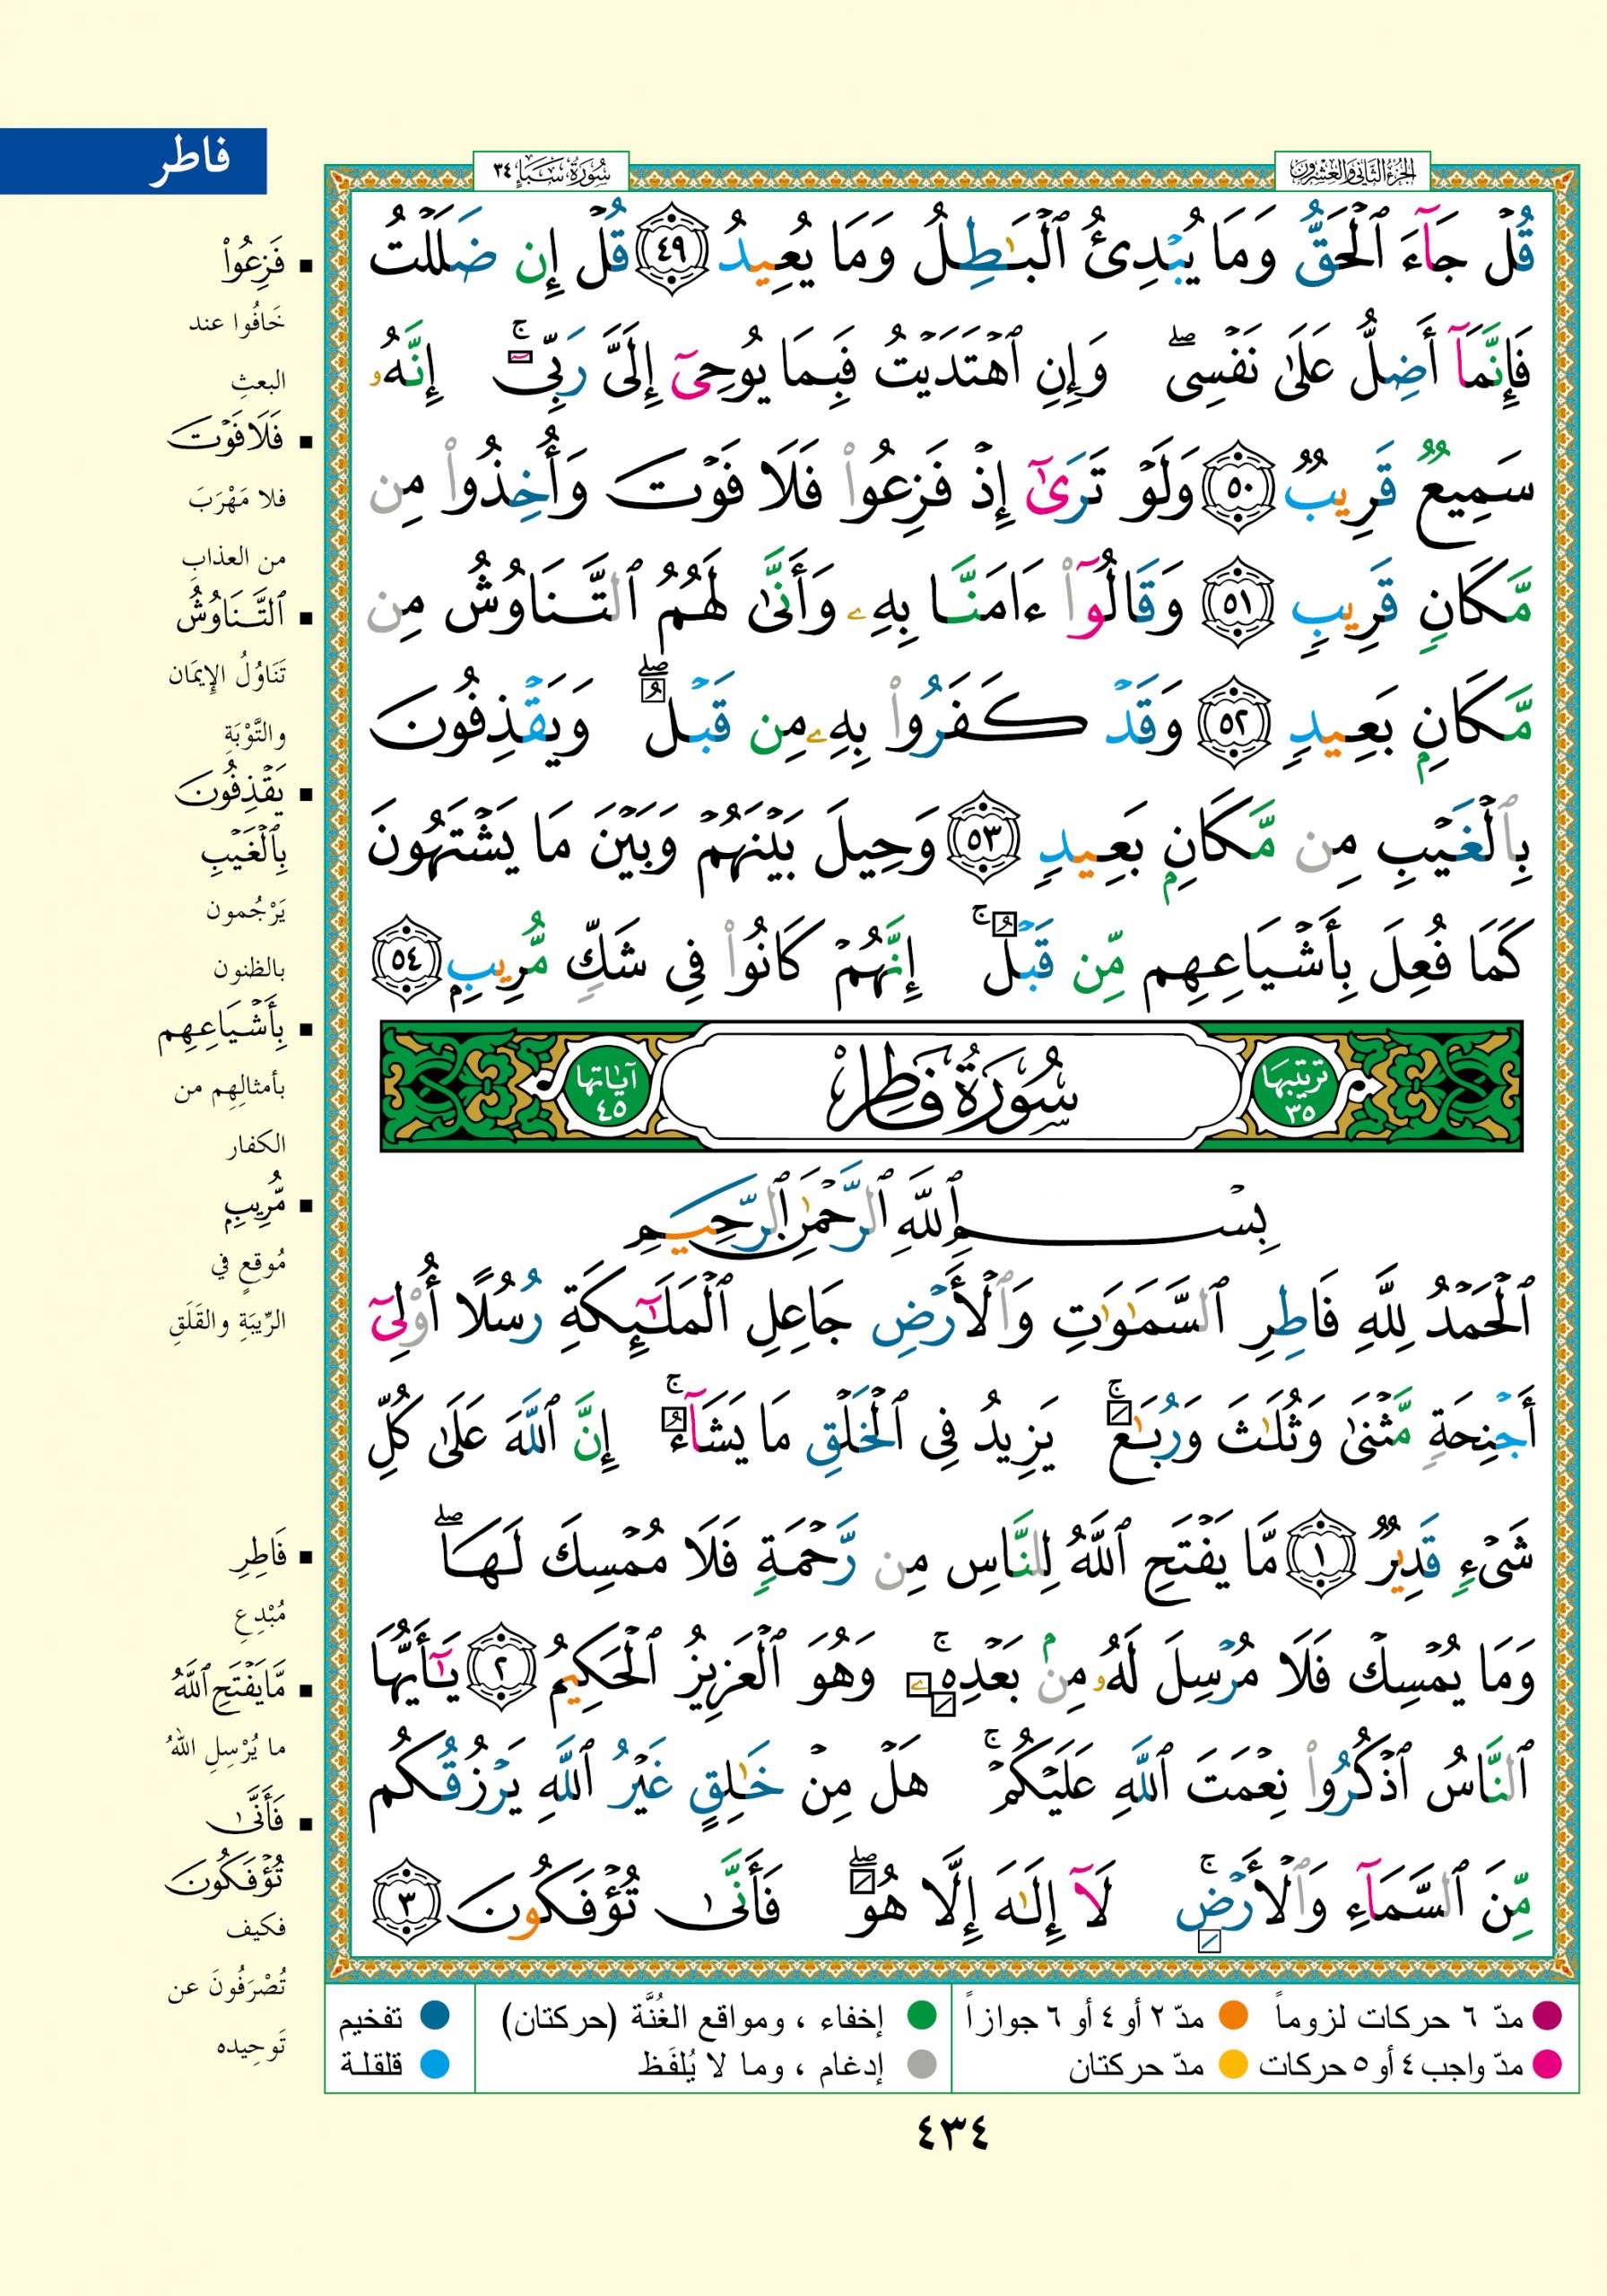 فاطر
الجزء الثاني والعشرون
سُورَةُ سَبَإٍ ٣٤
قُلۡ جَآءَ ٱلۡحَقُّ وَمَا يُبۡدِئُ ٱلۡبَـٰطِلُ وَمَا يُعِيدُ ٤٩ قُلۡ إِن ضَلَلۡتُ
فَإِنَّمَآ أَضِلُّ عَلَىٰ نَفۡسِىۖ وَإِنِ ٱهۡتَدَيۡتُ فَبِمَا يُوحِىٓ إِلَىَّ رَبِّىٓۚ إِنَّهُۥ
سَمِيعٌ قَرِيبٌ ٥٠ وَلَوۡ تَرَىٰٓ إِذۡ فَزِعُوا۟ فَلَا فَوۡتَ وَأُخِذُوا۟ مِن
مَّكَانٍ قَرِيبٍ ٥١ وَقَالُوٓا۟ ءَامَنَّا بِهِۦ وَأَنَّىٰ لَهُمُ ٱلتَّنَاوُشُ مِن
مَّكَانٍۭ بَعِيدٍ ٥٢ وَقَدۡ كَفَرُوا۟ بِهِۦ مِن قَبۡلُۖ وَيَقۡذِفُونَ
بِٱلۡغَيۡبِ مِن مَّكَانٍۭ بَعِيدٍ ٥٣ وَحِيلَ بَيۡنَهُمۡ وَبَيۡنَ مَا يَشۡتَهُونَ
كَمَا فُعِلَ بِأَشۡيَاعِهِم مِّن قَبۡلُۚ إِنَّهُمۡ كَانُوا۟ فِى شَكٍّ مُّرِيبٍۭ ٥٤
ترتيبها ٣٥ سُورَةُ فَاطِرٍ آياتها ٤٥
بِسۡمِ ٱللَّهِ ٱلرَّحۡمَـٰنِ ٱلرَّحِيمِ
ٱلۡحَمۡدُ لِلَّهِ فَاطِرِ ٱلسَّمَـٰوَٰتِ وَٱلۡأَرۡضِ جَاعِلِ ٱلۡمَلَـٰٓئِكَةِ رُسُلًا أُو۟لِىٓ
أَجۡنِحَةٍ مَّثۡنَىٰ وَثُلَـٰثَ وَرُبَـٰعَۚ يَزِيدُ فِى ٱلۡخَلۡقِ مَا يَشَآءُۚ إِنَّ ٱللَّهَ عَلَىٰ كُلِّ
شَىۡءٍ قَدِيرٌ ١ مَّا يَفۡتَحِ ٱللَّهُ لِلنَّاسِ مِن رَّحۡمَةٍ فَلَا مُمۡسِكَ لَهَاۖ
وَمَا يُمۡسِكۡ فَلَا مُرۡسِلَ لَهُۥ مِنۢ بَعۡدِهِۦۚ وَهُوَ ٱلۡعَزِيزُ ٱلۡحَكِيمُ ٢ يَـٰٓأَيُّهَا
ٱلنَّاسُ ٱذۡكُرُوا۟ نِعۡمَتَ ٱللَّهِ عَلَيۡكُمۡۚ هَلۡ مِنۡ خَـٰلِقٍ غَيۡرُ ٱللَّهِ يَرۡزُقُكُم
مِّنَ ٱلسَّمَآءِ وَٱلۡأَرۡضِۚ لَآ إِلَـٰهَ إِلَّا هُوَۖ فَأَنَّىٰ تُؤۡفَكُونَ ٣
فَزِعُوا۟
خَافُوا عند
البعثِ
فَلَا فَوۡتَ
فلا مَهْرَبَ
من العذابِ
ٱلتَّنَاوُشُ
تَنَاوُلُ الإيمَان
والتَّوْبَةِ
يَقۡذِفُونَ
بِٱلۡغَيۡبِ
يَرْجُمون
بالظنون
بِأَشۡيَاعِهِم
بأمثالِهِم من
الكفار
مُّرِيبٍۭ
مُوقعٍ في
الرِّيبَةِ والقَلَقِ
فَاطِرِ
مُبْدِعِ
مَّا يَفۡتَحِ ٱللَّهُ
ما يُرْسِلِ اللهُ
فَأَنَّىٰ
تُؤۡفَكُونَ
فكيف
تُصْرَفُونَ عن
تَوحِيده
مدّ ٦ حركات لزوماً مدّ ٢ أو ٤ أو ٦ جوازاً
مدّ واجب ٤ أو ٥ حركات مدّ حركتان
إخفاء ، ومواقع الغُنَّة (حركتان)
إدغام ، وما لا يُلفَظ
تفخيم
قلقلة
٤٣٤